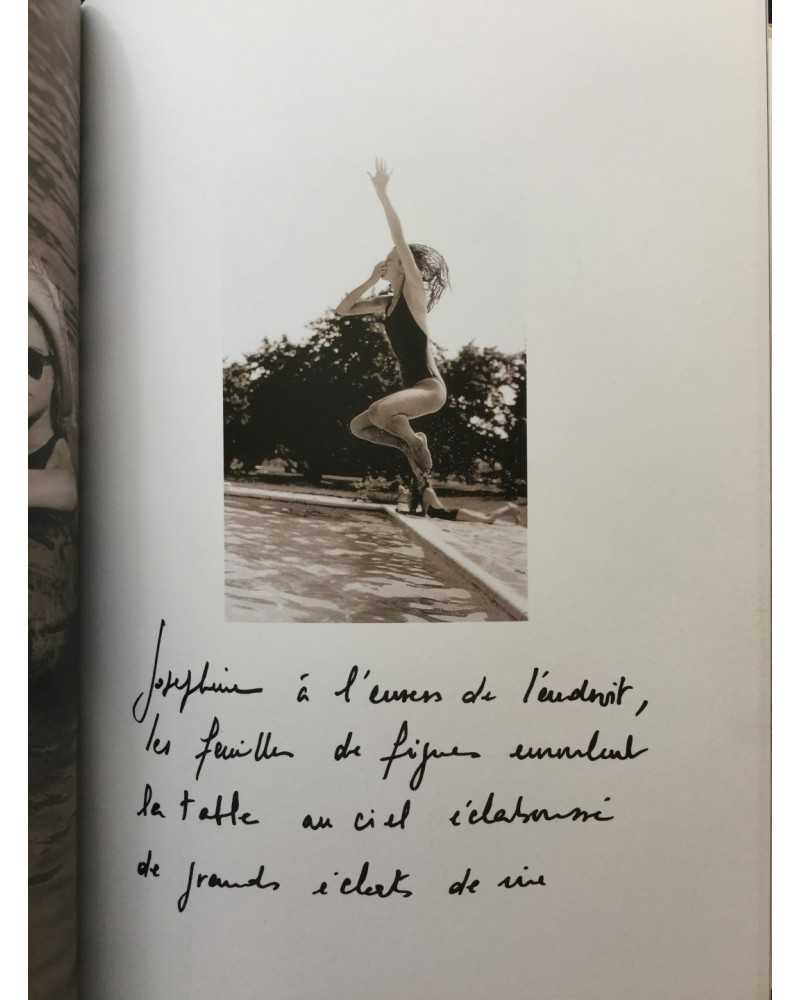 Josephine à l'envers de l'endroit,
les feuilles de figues enroulent
la table au ciel éclaboussé
de grands éclats de rire